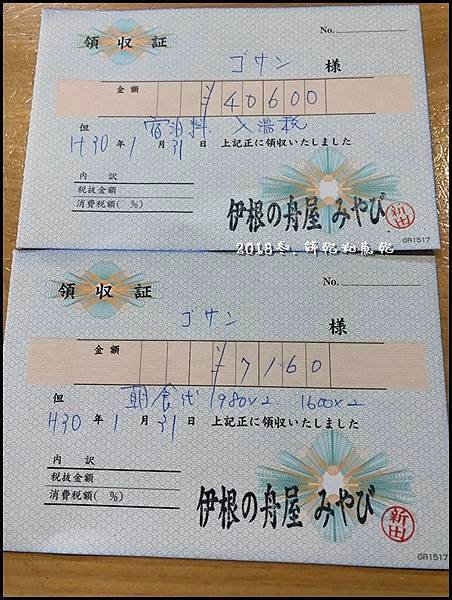 領収証
No.
ゴサン 様
金額 ¥40600
但 宿泊料 入湯税
H30年1月31日 上記正に領収いたしました
内訳
税抜金額
消費税額( %)
伊根の舟屋 みやび
新田
GR1517
2018冬.
領収証
No.
ゴサン 様
金額 ¥7160
但 朝食代 1980×2 1600×2
H30年1月31日 上記正に領収いたしました
内訳
税抜金額
消費税額( %)
伊根の舟屋 みやび
新田
GR1517